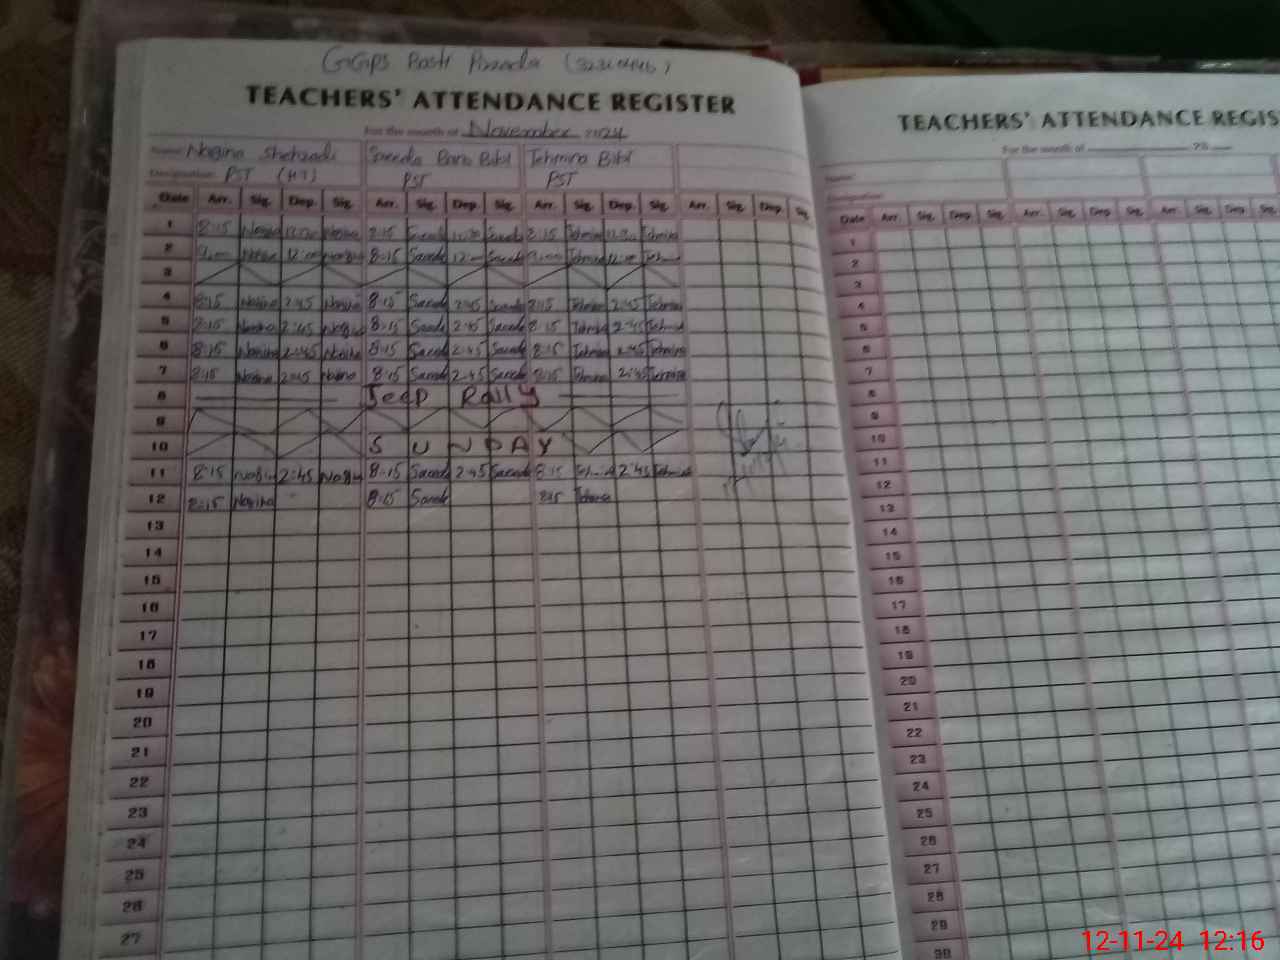 GGPS Basti
TEACHERS' ATTENDANCE REGISTER
For the month of November 2024
Name Nagina Shehzadi Saeeda Bano Bibi Tehmina Bibi
Designation PST (HT) PST PST
Date Arr. Sig. Dep. Sig. Arr. Sig. Dep. Sig. Arr. Sig. Dep. Sig. Arr. Sig. Dep. Sig.
1 8:15 Nagina Nagina 8:15 Saeeda 12:30 Saeeda 8:15 Tehmina Tehmina
2 Nagina 8:15 Saeeda 12:00 Saeeda Tehmina
3
4 8:15 Nagina 2:45 Nagina 8:15 Saeeda 2:45 Saeeda 8:15 Tehmina 2:45 Tehmina
5 8:15 Nagina 2:45 Nagina 8:15 Saeeda 2:45 Saeeda 8:15 Tehmina 2:45 Tehmina
6 8:15 Nagina 2:45 Nagina 8:15 Saeeda 2:45 Saeeda 8:15 Tehmina 2:45 Tehmina
7 8:15 Nagina 2:45 Nagina 8:15 Saeeda 2:45 Saeeda 8:15 Tehmina 2:45 Tehmina
8 Jeep Rally
9
10 SUNDAY
11 8:15 Nagina 2:45 Nagina 8:15 Saeeda 2:45 Saeeda 8:15 Tehmina 2:45 Tehmina
12 8:15 Nagina 8:15 Saeeda 8:15 Tehmina
13
14
15
16
17
18
19
20
21
22
23
24
25
26
27
TEACHERS' ATTENDANCE REGIS
For the month of 20
Name:
Designation:
Date Arr. Sig. Dep. Sig. Arr. Sig. Dep. Sig. Arr. Sig. Dep. Sig.
1
2
3
4
5
6
7
8
9
10
11
12
13
14
15
16
17
18
19
20
21
22
23
24
25
26
27
28
29
30
12-11-24 12:16